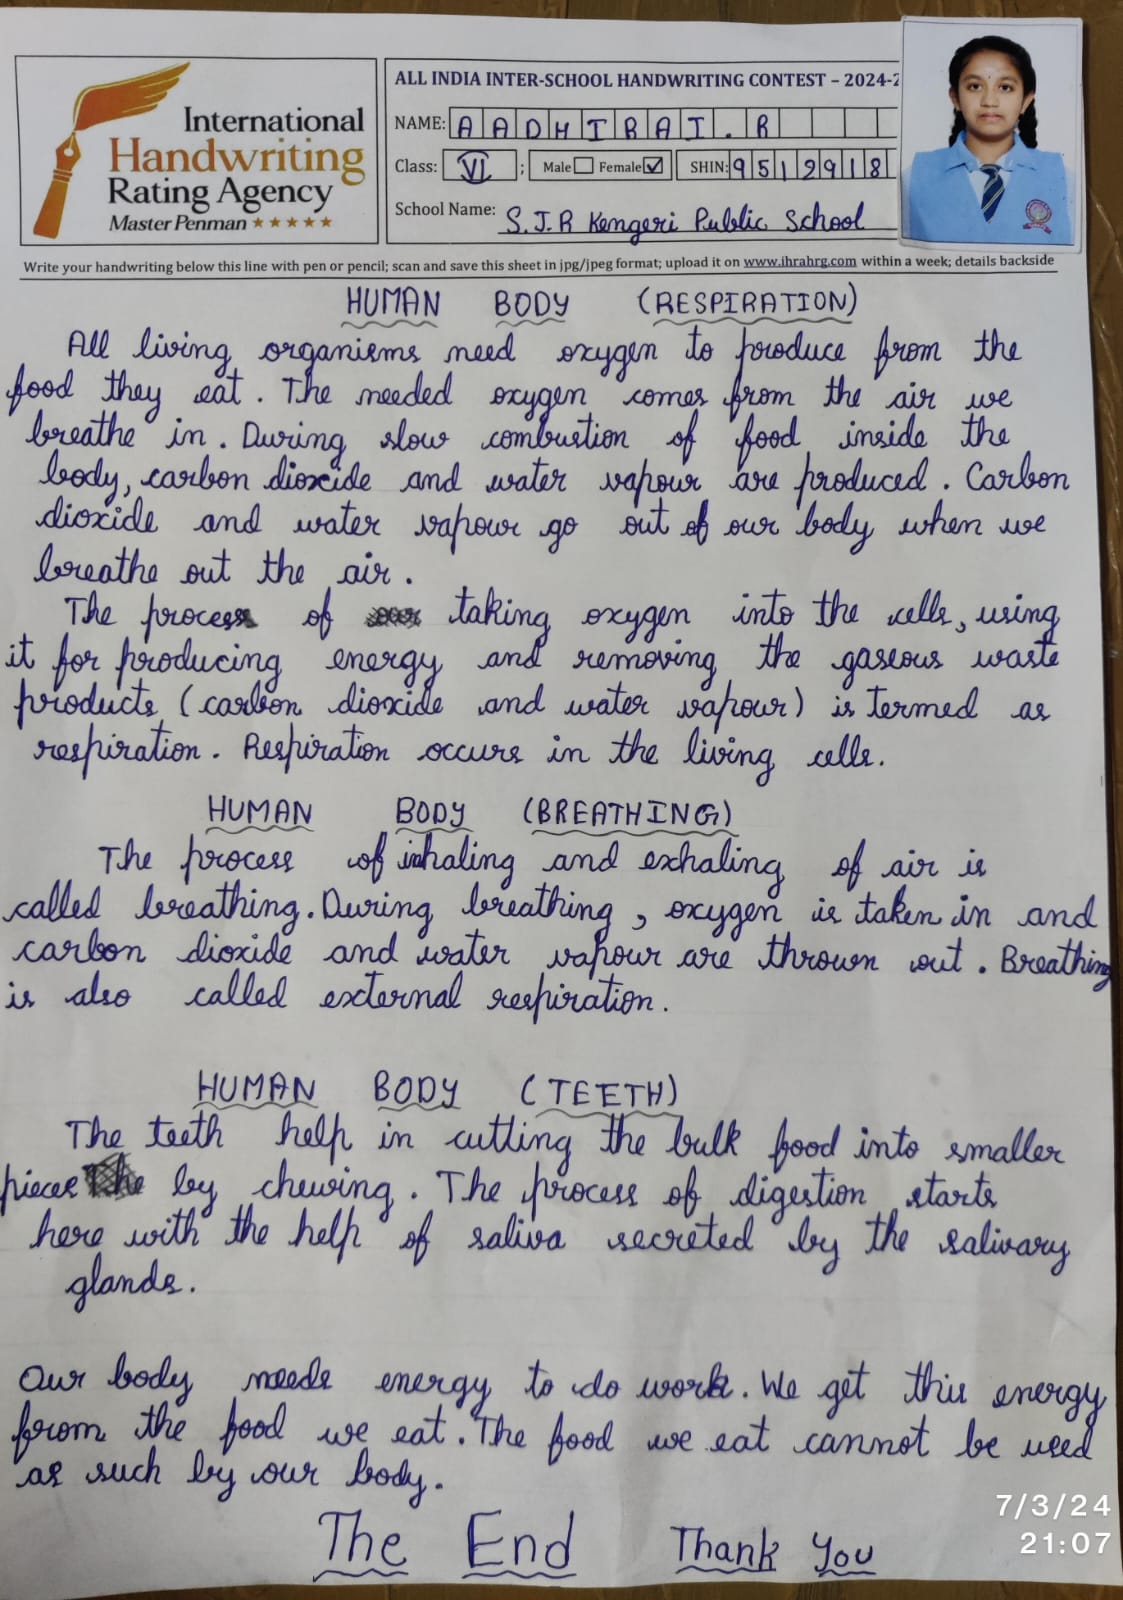 International
Handwriting
Rating Agency
Master Penman
ALL INDIA INTER-SCHOOL HANDWRITING CONTEST – 2024-2
NAME: AADHIRAI.R
Class: VI ; Male Female ✓ SHIN: 9512918
School Name: S.J.R Kengeri Public School
Write your handwriting below this line with pen or pencil; scan and save this sheet in jpg/jpeg format; upload it on www.ihrahrg.com within a week; details backside
HUMAN BODY (RESPIRATION)
All living organisms need oxygen to produce from the
food they eat. The needed oxygen comes from the air we
breathe in. During slow combustion of food inside the
body, carbon dioxide and water vapour are produced. Carbon
dioxide and water vapour go out of our body when we
breathe out the air.
The process of taking oxygen into the cells, using
it for producing energy and removing the gaseous waste
products (carbon dioxide and water vapour) is termed as
respiration. Respiration occurs in the living cells.
HUMAN BODY (BREATHING)
The process of inhaling and exhaling of air is
called breathing. During breathing, oxygen is taken in and
carbon dioxide and water vapour are thrown out. Breathing
is also called external respiration.
HUMAN BODY (TEETH)
The teeth help in cutting the bulk food into smaller
pieces by chewing. The process of digestion starts
here with the help of saliva secreted by the salivary
glands.
Our body needs energy to do work. We get this energy
from the food we eat. The food we eat cannot be used
as such by our body.
The End Thank You
7/3/24
21:07